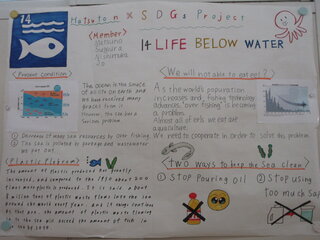 14
Hatsuton × SDGs Project
<Member>
14 LIFE BELOW WATER
<Present condition>
The ocean is the source
of all life on earth and
We have received many
However, the sea has a
serious problem.
① Decrease of many sea resources by over fishing.
② The sea is polluted by garbage and wastewater
we put out.
<We will not able to eat eel?>
As the world's population
increases and fishing technology
advances, "over fishing" is becoming
a problem.
Almost all of eels we eat are
aquaculture.
We need to cooperate in order to solve this problem.
<Plastic Plobrem>
The amount of plastic produced has greatly
increased, and compared to the 1950 about 200
times more plastic is produced. It is said about
8 million tons of plastic waste flows into the sea
around the world every year. And if things continue
at this pace, the amount of plastic waste flowing
in the sea will exceed the amount of fish in
the by 2050
<Two ways to keep the Sea clean!>
① Stop pouring oil
② Stop using
too much